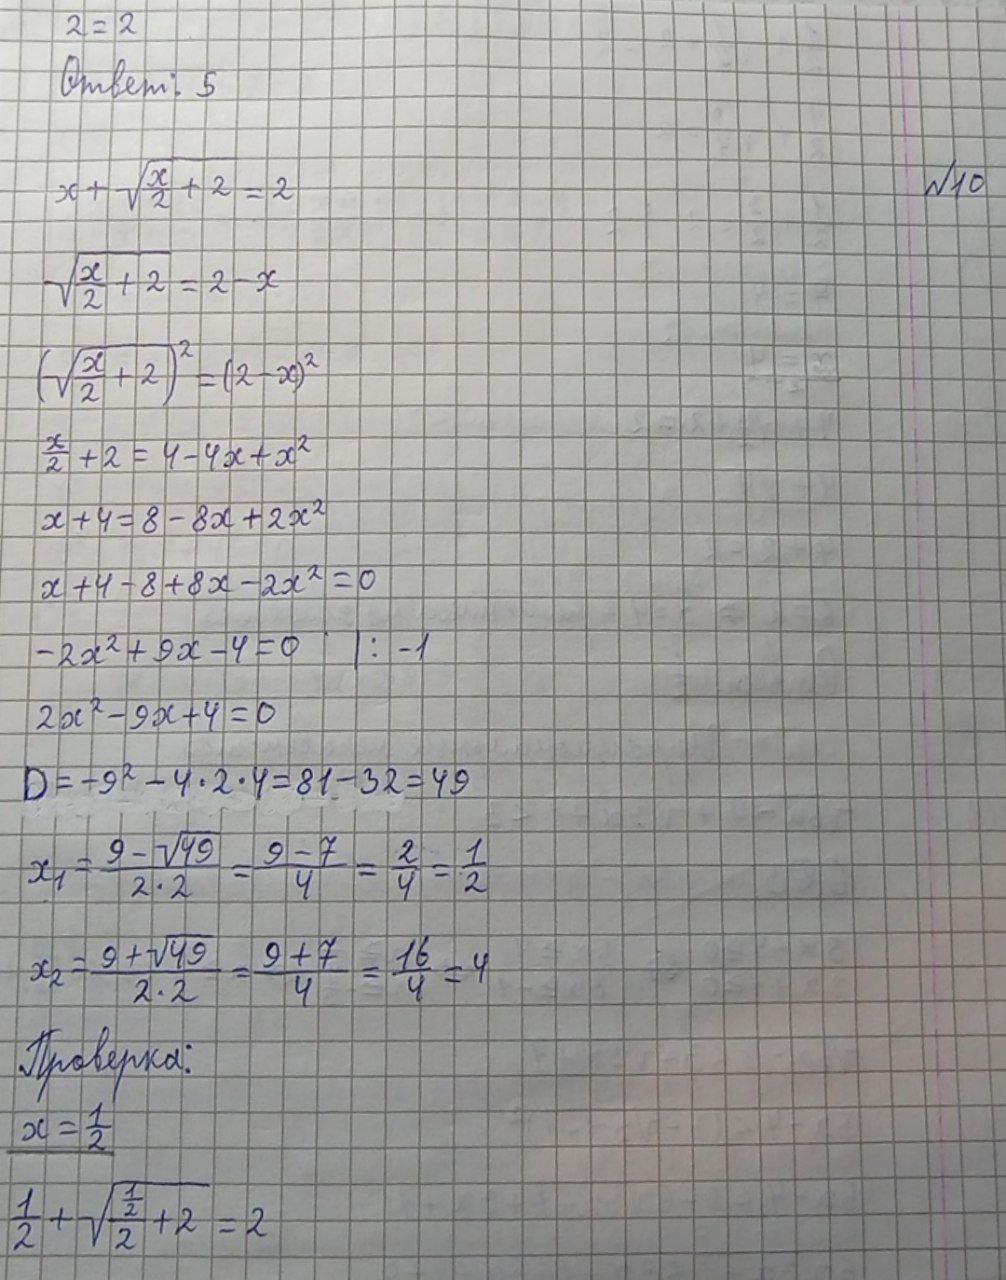 2 = 2
Ответ: 5
x + √(x/2 + 2) = 2
№10
√(x/2 + 2) = 2 - x
(√(x/2 + 2))² = (2 - x)²
x/2 + 2 = 4 - 4x + x²
x + 4 = 8 - 8x + 2x²
x + 4 - 8 + 8x - 2x² = 0
-2x² + 9x - 4 = 0 | : -1
2x² - 9x + 4 = 0
D = -9² - 4 · 2 · 4 = 81 - 32 = 49
x₁ = (9 - √49)/(2 · 2) = (9 - 7)/4 = 2/4 = 1/2
x₂ = (9 + √49)/(2 · 2) = (9 + 7)/4 = 16/4 = 4
Проверка:
x = 1/2
1/2 + √((1/2)/2 + 2) = 2